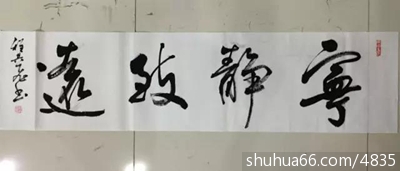 寧靜致遠
shuhua66.com/4835